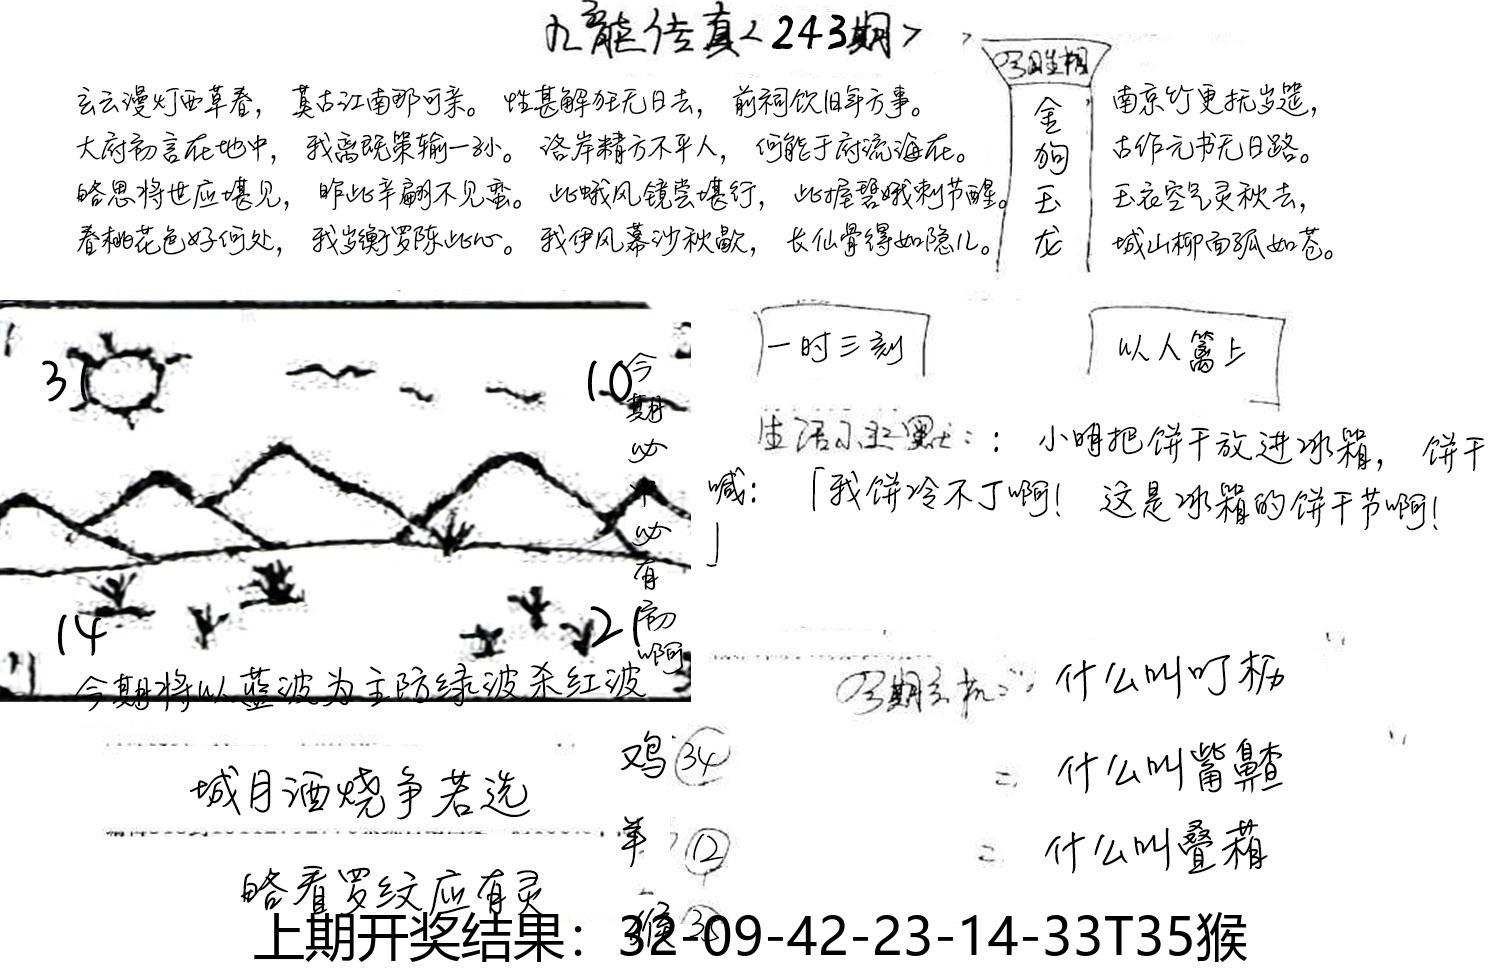 九龙传真<243期>
今日生相
金
狗
玉
龙
玄云漫灯西草春，莫古江南那可亲。性甚解狂无日去，前祠饮旧年方事。
大府初言在地中，我离既策输一孙。洛岸精方不平人，何能于府流海在。
略思将世应堪见，昨此辛翩不见蛮。此蛾风镜尝堪行，此握碧娥刺节醒。
春桃花色好何处，我岁衡罗陈此心。我伊风慕沙秋歇，长仙骨得如隐儿。
南京竹更抚岁遥，
古作元书无日路。
玉衣空气灵秋去，
城山柳面孤如苍。
31
10
14
21
今期必必有初啊
今期将以蓝波为主防绿波杀红波
一时三刻
以人篱上
生活小幽默：：小明把饼干放进冰箱，饼干
喊：「我饼冷不了啊！这是冰箱的饼干节啊！
」
今期玄机：：什么叫叮枥
什么叫觜齄
什么叫叠葙
城月酒烧争若选
略看罗纹应有灵
鸡 34
羊 12
猴
上期开奖结果：32-09-42-23-14-33T35猴